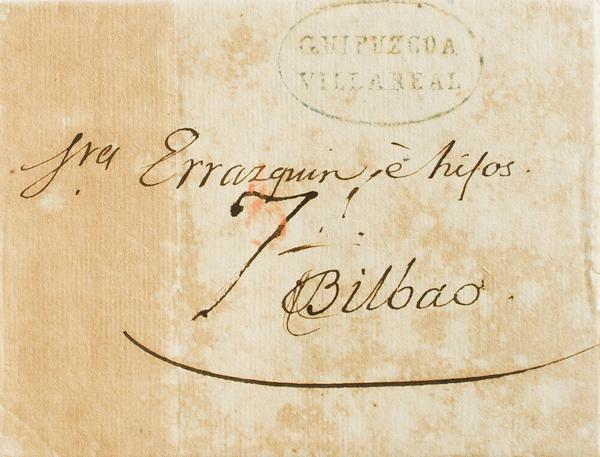 GUIPUZCOA
VILLAREAL
Sres Errazquin è hijos.
7
Bilbao.